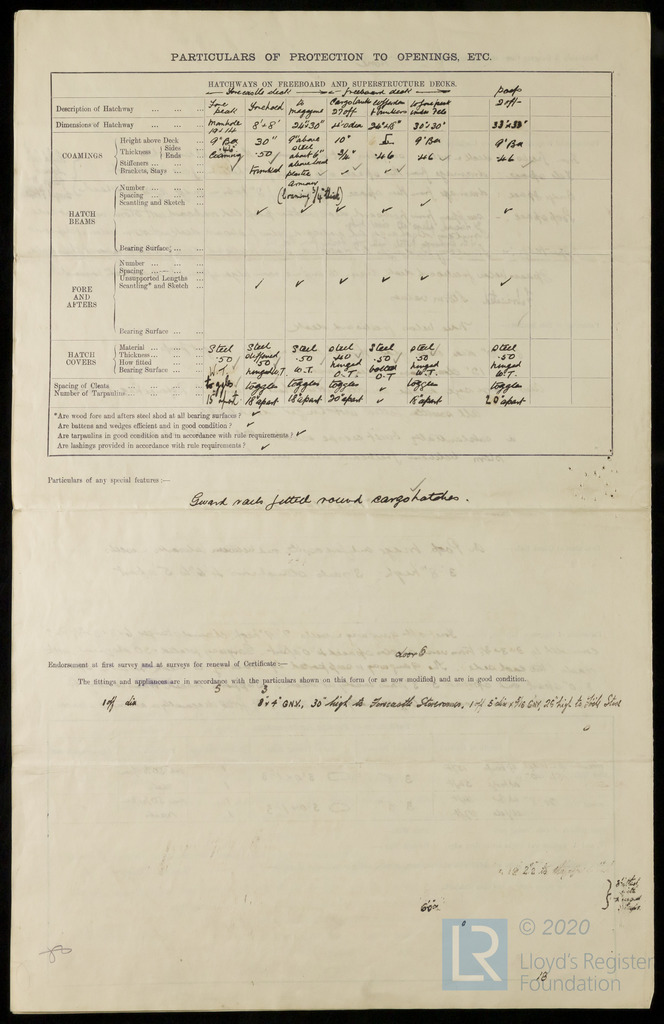 PARTICULARS OF PROTECTION TO OPENINGS, ETC.
HATCHWAYS ON FREEBOARD AND SUPERSTRUCTURE DECKS.
Forecastle deck freeboard deck Poop
Description of Hatchway Fore peak Forehold to magazine Cargo tank 27 off Cofferdam to fore peak under Fcle 2 off
Dimensions of Hatchway Manhole 19 x 14 8' x 8' 24" x 30" 4'-0 dia 24" x 18" 30" x 30" 33" x 33"
COAMINGS
Height above Deck 9" BA 30" 9" above 10" 9" BA 9" BA
Thickness { Sides Ends .50 .46 .46 .46
Stiffeners
Brackets, Stays
HATCH BEAMS
Number
Spacing
Scantling and Sketch ✓ ✓ ✓ ✓ ✓ ✓
Bearing Surface
FORE AND AFTERS
Number
Spacing
Unsupported Lengths
Scantling* and Sketch ✓ ✓ ✓ ✓ ✓ ✓
Bearing Surface
HATCH COVERS
Material Steel Steel Steel Steel Steel Steel Steel
Thickness .50 .50 .50 .40 .50 .50 .50
How fitted hinged hinged bolted hinged hinged
Bearing Surface W.T. O.T. W.T. O.T. O.T. W.T. W.T.
Spacing of Cleats toggles toggles toggles toggles toggles toggles
Number of Tarpaulins 15" apart 18" apart 18" apart 20" apart ✓ 18" apart 20" apart
*Are wood fore and afters steel shod at all bearing surfaces? ✓
Are battens and wedges efficient and in good condition? ✓
Are tarpaulins in good condition and in accordance with rule requirements? ✓
Are lashings provided in accordance with rule requirements? ✓
Particulars of any special features:—
Guard rails fitted round cargo hatches.
door 6
Endorsement at first survey and at surveys for renewal of Certificate:—
The fittings and appliances are in accordance with the particulars shown on this form (or as now modified) and are in good condition.
5 3
1 off dia 8" x 4" GNV., 30" high to Forecastle Storerooms, 1 off 5" dia x GNV, 25" high to
18
© 2020
LR
Lloyd's Register
Foundation